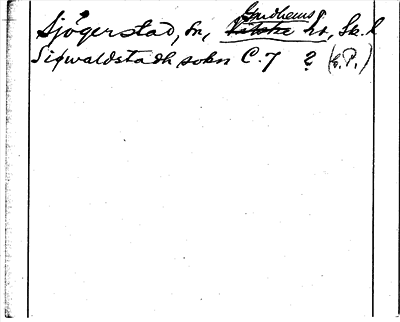 Gudhems
Sjögerstad, sn, Vilske hd, Sk. l
Sigwaldstadh sokn C. 7 ? (E.P.)